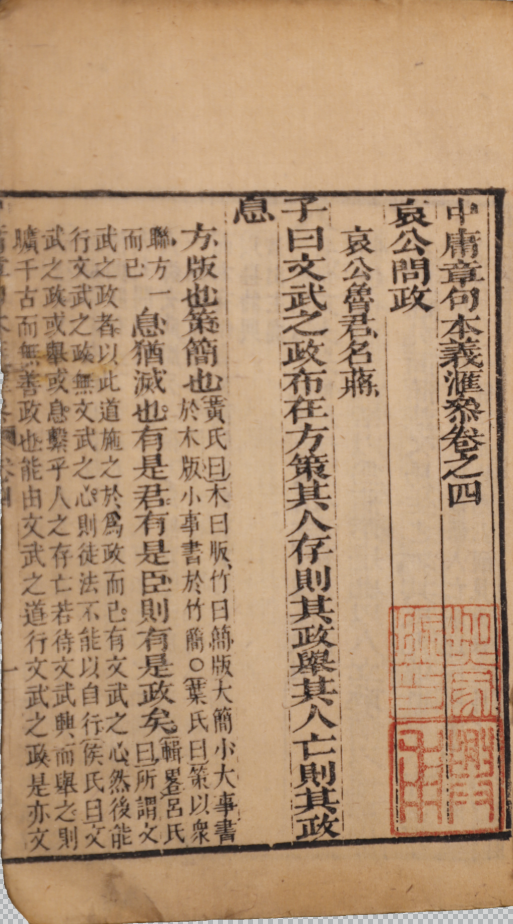 中庸章句本義滙參卷之四
哀公問政
哀公魯君名蔣
子曰文武之政布在方策其人存則其政舉其人亡則其政
息
方版也策簡也黃氏曰木曰版竹曰簡版大簡小大事書
於木版小事書於竹簡○葉氏曰策以衆
聯方一
而已
息猶滅也有是君有是臣則有是政矣輯畧呂氏
曰所謂文
武之政者以此道施之於爲政而已有文武之心然後能
行文武之政無文武之心則徒法不能以自行侯氏曰文
武之政或舉或息繫乎人之存亡若待文武興而舉之則
曠千古而無善政也能由文武之道行文武之政是亦文